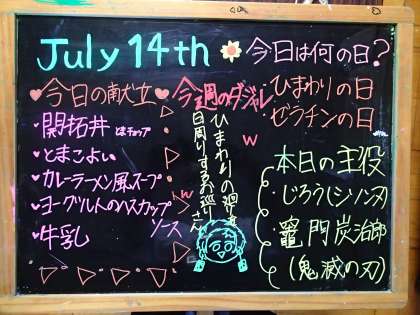 July 14th
今日は何の日?
ひまわりの日
ゼラチンの日
今日の献立
開拓丼
とまこよい
カレーラーメン風スープ
ヨーグルトのハスカップ
ソース
牛乳
今週のダジャレ
ひまわりの廻りを
日周りするお巡りさん
w
w
本日の主役
じろう(シソンヌ)
竈門炭治郎
(鬼滅の刃)